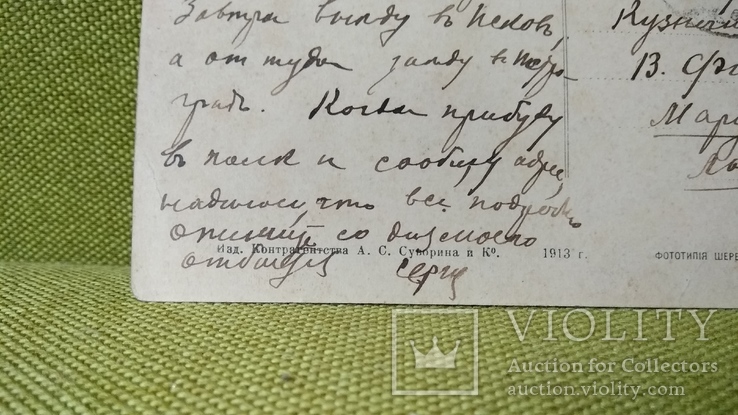 Завтра выѣду въ Псковъ,
а оттуда заѣду въ Петро-
градъ. Когда прибуду
въ полк и сообщу адрес,
надѣюсь, что все подробно
опишите со дня моего
отъѣзда Серг
Изд. Контрагентства А. С. Суворина и Ко. 1913 г.
Кузне
В.
Мар
ФОТОТИПІЯ ШЕРЕ
VIOLITY
Auction for Collectors
auction.violity.com